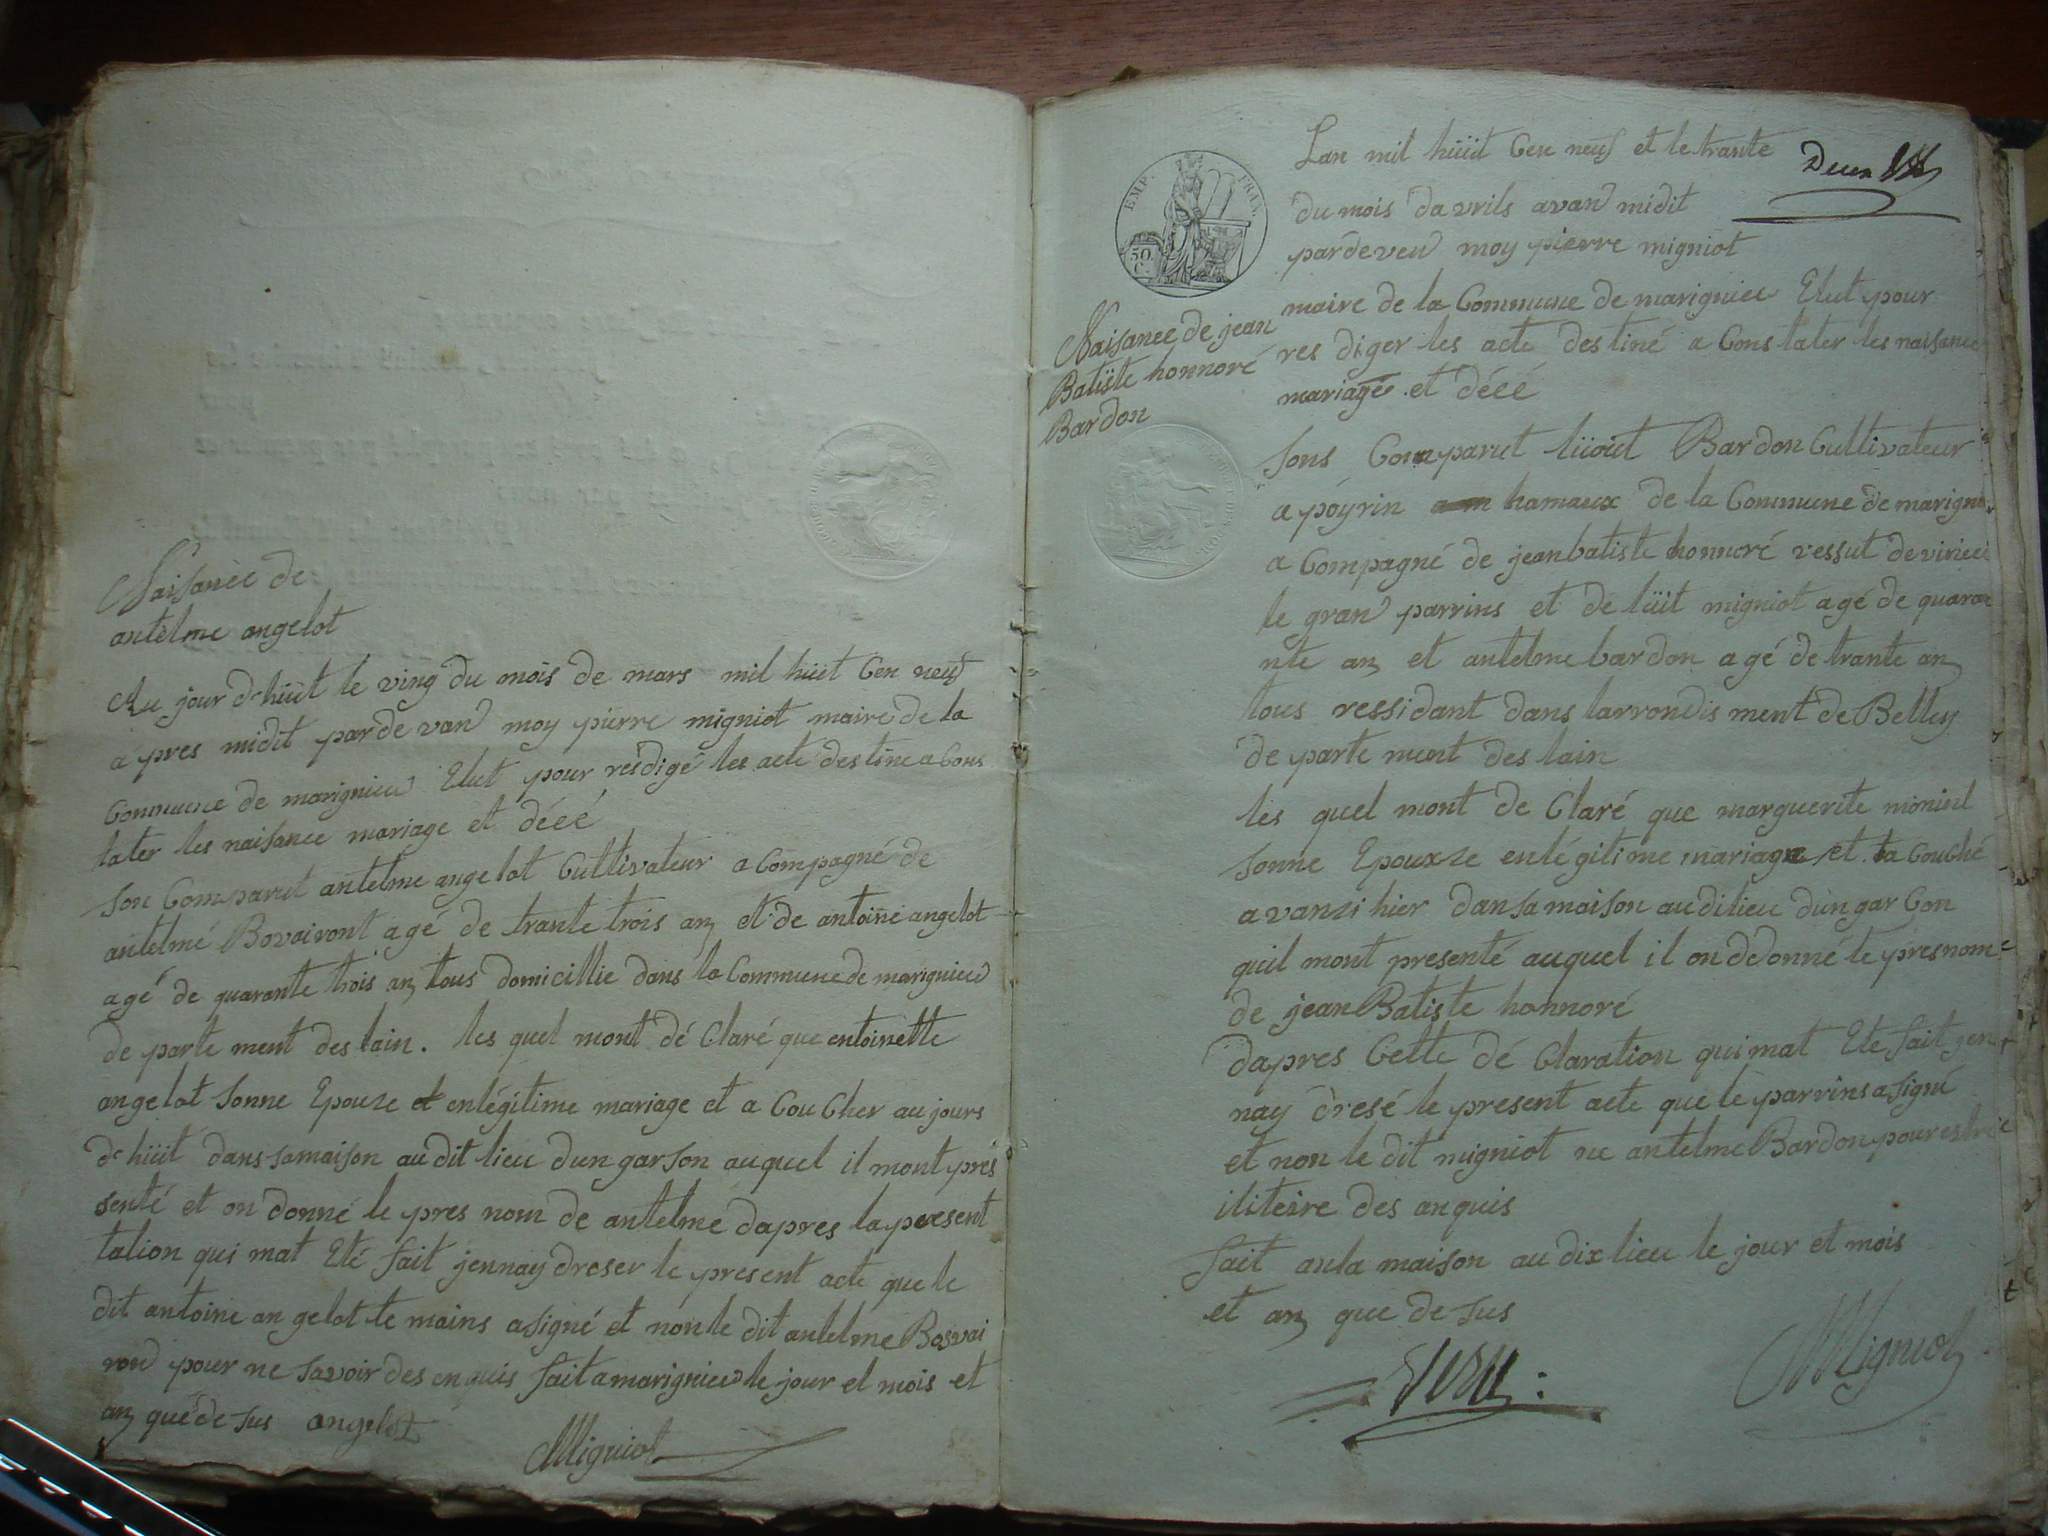 Naisance de
antelme angelot
Au jour d'hüit le ving du mois de mars mil hüit Cen neuf
a pres midit par de van moy pierre migniot maire de la
Commune de marignieu Elut pour resdigé les acte destine a Cons
tater les naisance mariage et décé
Son Comparut antelme angelot Cultivateur a Compagné de
antelme Bovairont agé de trante trois an et de antoine angelot
agé de quarante trois an tous domicillie dans la Commune de marignieu
de parte ment des lain. les quel mont dé Claré que entoinette
angelot Sonne Epouze et enlégitime mariage et a Cou Cher au jours
d'hüit dans samaison au dit lieu dun garson auquel il mont pres
senté et on donné le pres nom de antelme dapres la present
tation qui mat Eté fait jennay dreser le present acte que le
dit antoine an gelot te mains asigné et non le dit antelme Bosvai
rond pour ne savoir des enquis fait a marignieu le jour et mois et
an que de sus angelot
Migniot
EMP. FRAN.
50. C.
Naisance de jean
Batiste honnoré
Bardon
Lan mil hüit Cen neuf et le trante
du mois davrils avan midit
pardeven moy pierre migniot
maire de la Commune de marignieu Elut pour
res diger les acte destiné a Cons tater les naisance
mariage et décé
Sons Comparut Bardon Cultivateur
a poyrin hamaux de la Commune de marigni
a Compagné de jeanbatiste honnoré vessut de
le gran parrins et de lüit migniot agé de quaran
nte an et antelme bardon agé de trante an
tous ressidant dans larrondis ment de Belley
de parte ment des lain
les quel mont de Claré que marguerite
sonne Epouxze enlégitime mariage et ta Couché
avanzi hier dansamaison au di lieu dun gar Con
quil mont presenté auquel il on donné le presnom
de jean Batiste honnoré
dapres Cette dé Claration qui mat Ete fait jen
nay dresé le present acte que le parrins a signé
et non le dit migniot ne antelme Bardon pour estre
iliteire des anquis
fait an la maison au dix lieu le jour et mois
et an que de sus
Migniot